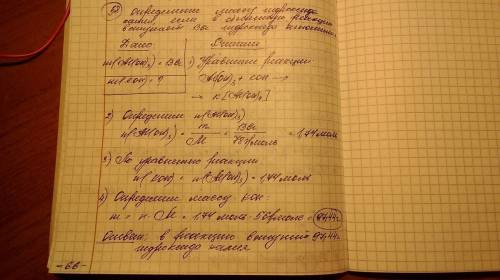 Определите массу гидроксида
калия, если в реакцию
вступает 13 г гидроксида алюминия
Дано
Решение
m(Al(OH)3) = 13 г
1) Уравнение реакции
m(KOH) = ?
Al(OH)3 + KOH →
→ K[Al(OH)4]
2) Определяем n(Al(OH)3)
n(Al(OH)3) = m/M = /78 г/моль = 1,74 моль
3) По уравнению реакции
n(KOH) = n(Al(OH)3) = 1,74 моль
4) Определяем массу KOH:
m = n · M = 1,74 моль · 56 г/моль = 97,44 г
Ответ: в реакцию вступит 97,44 г
гидроксида калия
-66-